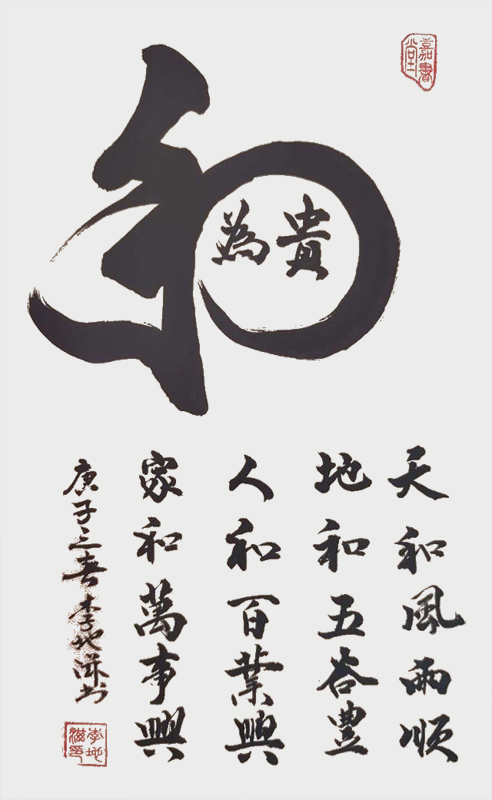 和
為貴
天和風雨順
地和五谷豊
人和百業興
家和萬事興
庚子之春李地滋书
李地滋印